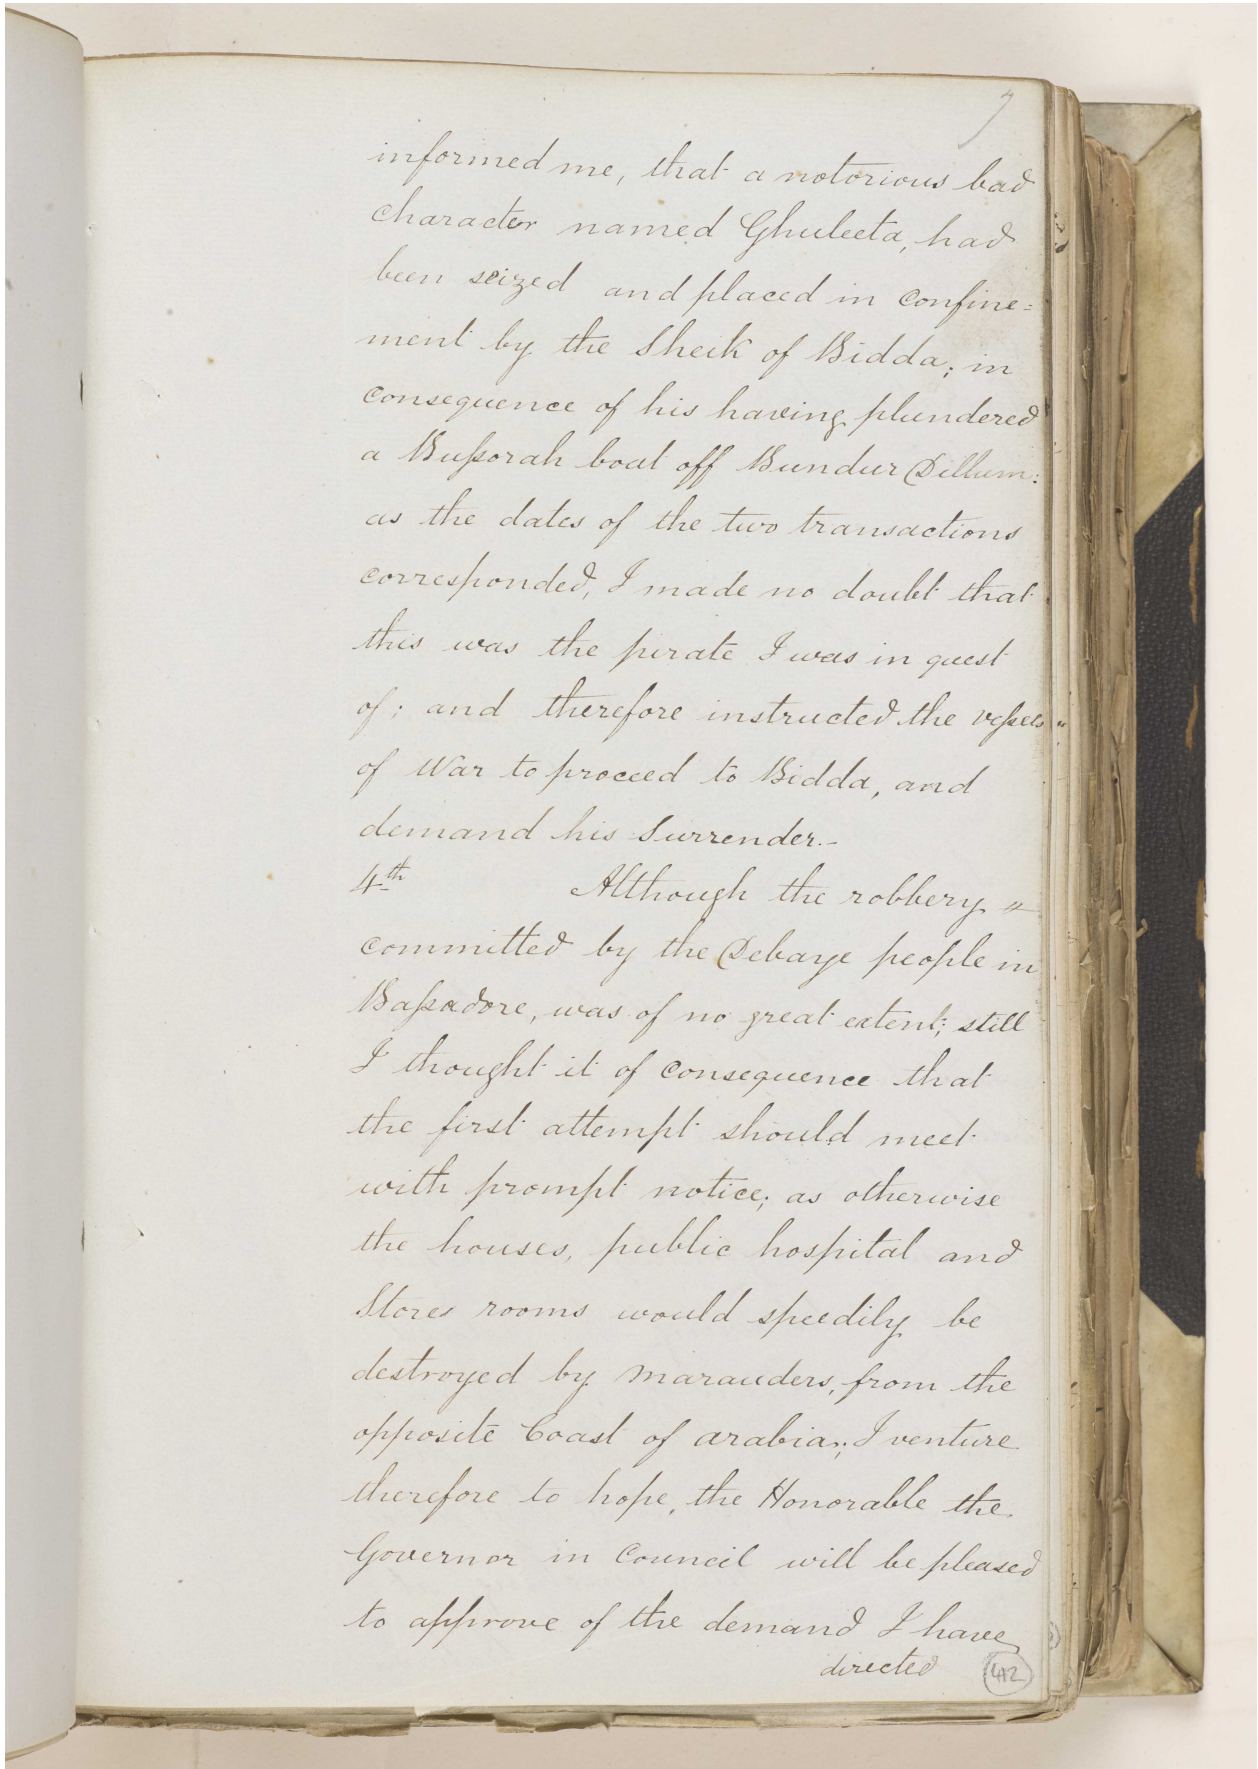 7
informed me, that a notorious bad
character named Ghuleeta, had
been seized and placed in confine=
ment by the Sheik of Bidda; in
consequence of his having plundered
a Bussorah boat off Bundur Dillum:
as the dates of the two transactions
corresponded, I made no doubt that
this was the pirate I was in quest
of; and therefore instructed the vessels "
of War to proceed to Bidda, and
demand his Surrender.-
4th Although the robbery "
committed by the Debaye people in
Bassadore, was of no great extent; still
I thought it of consequence that
the first attempt should meet
with prompt notice; as otherwise
the houses, public hospital and
Stores rooms would speedily be
destroyed by marauders, from the
opposite Coast of arabia; I venture
therefore to hope, the Honorable the
Governor in Council will be pleased
to approve of the demand I have
directed
412